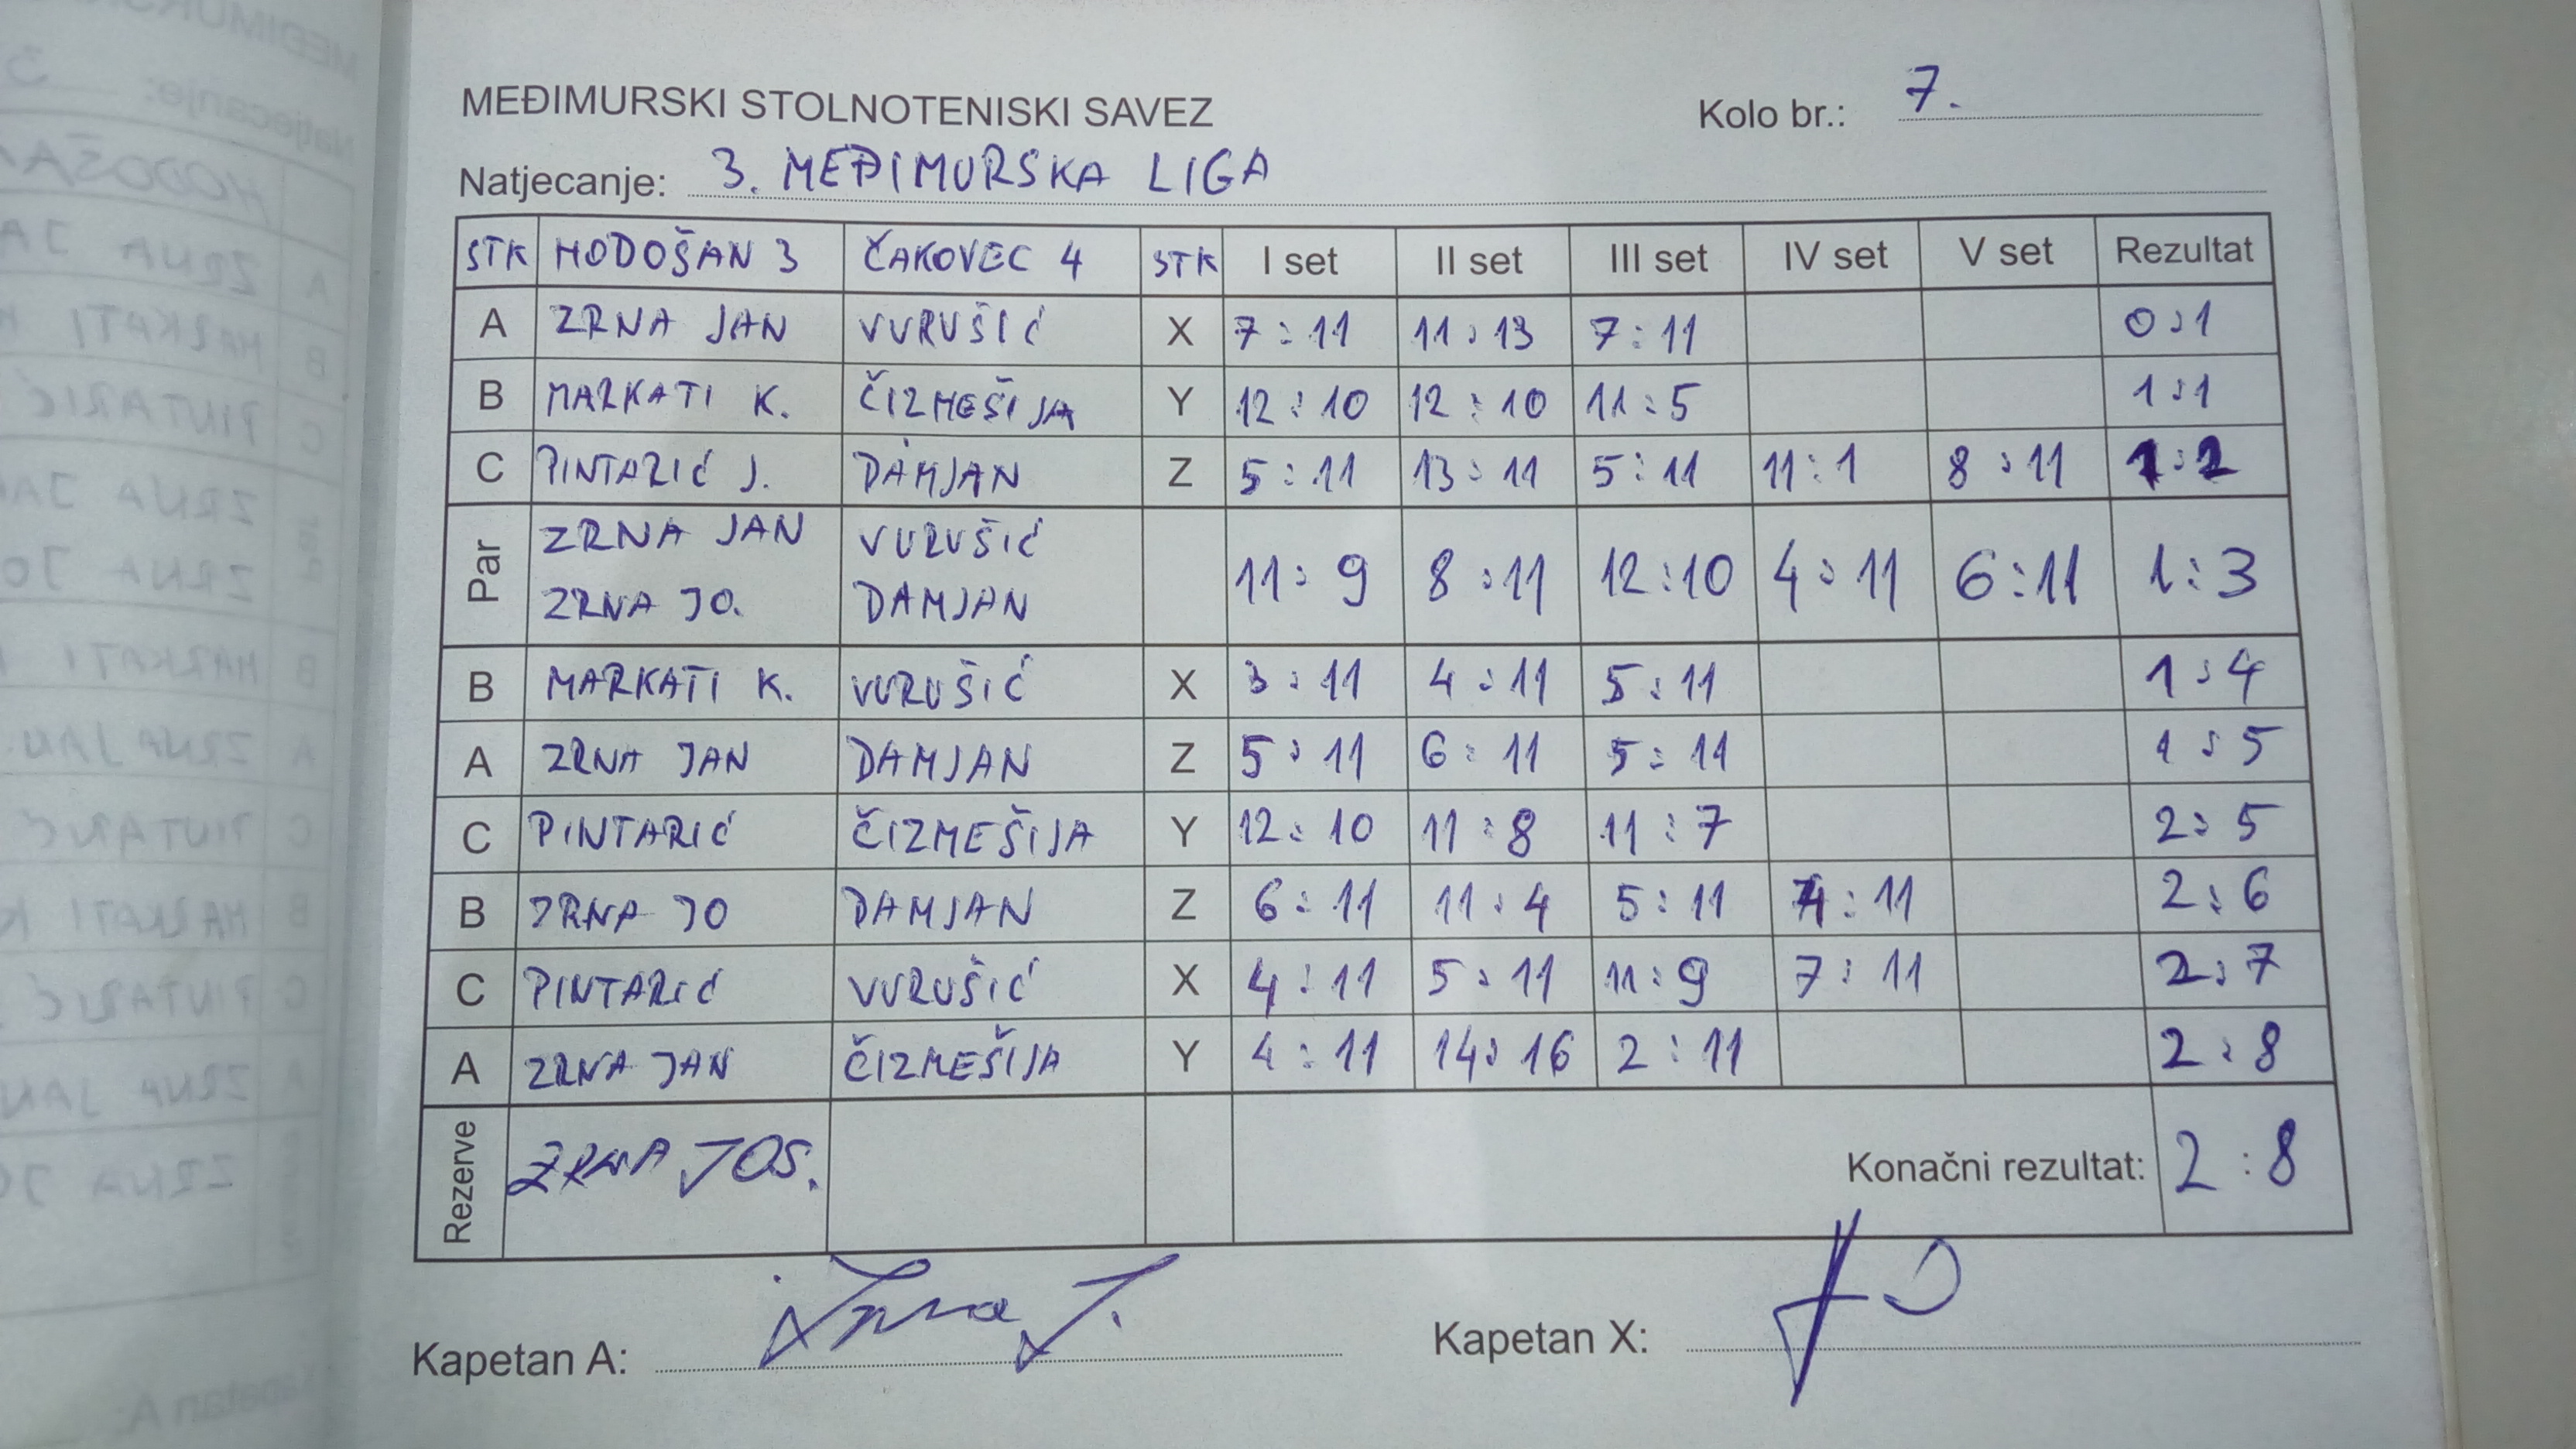 MEĐIMURSKI STOLNOTENISKI SAVEZ
Kolo br.: 7.
Natjecanje: 3. MEĐIMURSKA LIGA
STK HODOŠAN 3 ČAKOVEC 4 STK I set II set III set IV set V set Rezultat
A ZRNA JAN VURUŠIĆ X 7:11 11:13 7:11 0:1
B MARKATI K. ČIZMEŠIJA Y 12:10 12:10 11:5 1:1
C PINTARIĆ J. DAMJAN Z 5:11 13:11 5:11 11:1 8:11 1:2
Par ZRNA JAN VURUŠIĆ
ZRNA JO. DAMJAN 11:9 8:11 12:10 4:11 6:11 1:3
B MARKATI K. VURUŠIĆ X 3:11 4:11 5:11 1:4
A ZRNA JAN DAMJAN Z 5:11 6:11 5:11 1:5
C PINTARIĆ ČIZMEŠIJA Y 12:10 11:8 11:7 2:5
B ZRNA JO DAMJAN Z 6:11 11:4 5:11 :11 2:6
C PINTARIĆ VURUŠIĆ X 4:11 5:11 11:9 7:11 2:7
A ZRNA JAN ČIZMEŠIJA Y 4:11 14:16 2:11 2:8
Rezerve ZRNA JOS. Konačni rezultat: 2:8
Kapetan A: Zrna J.
Kapetan X: